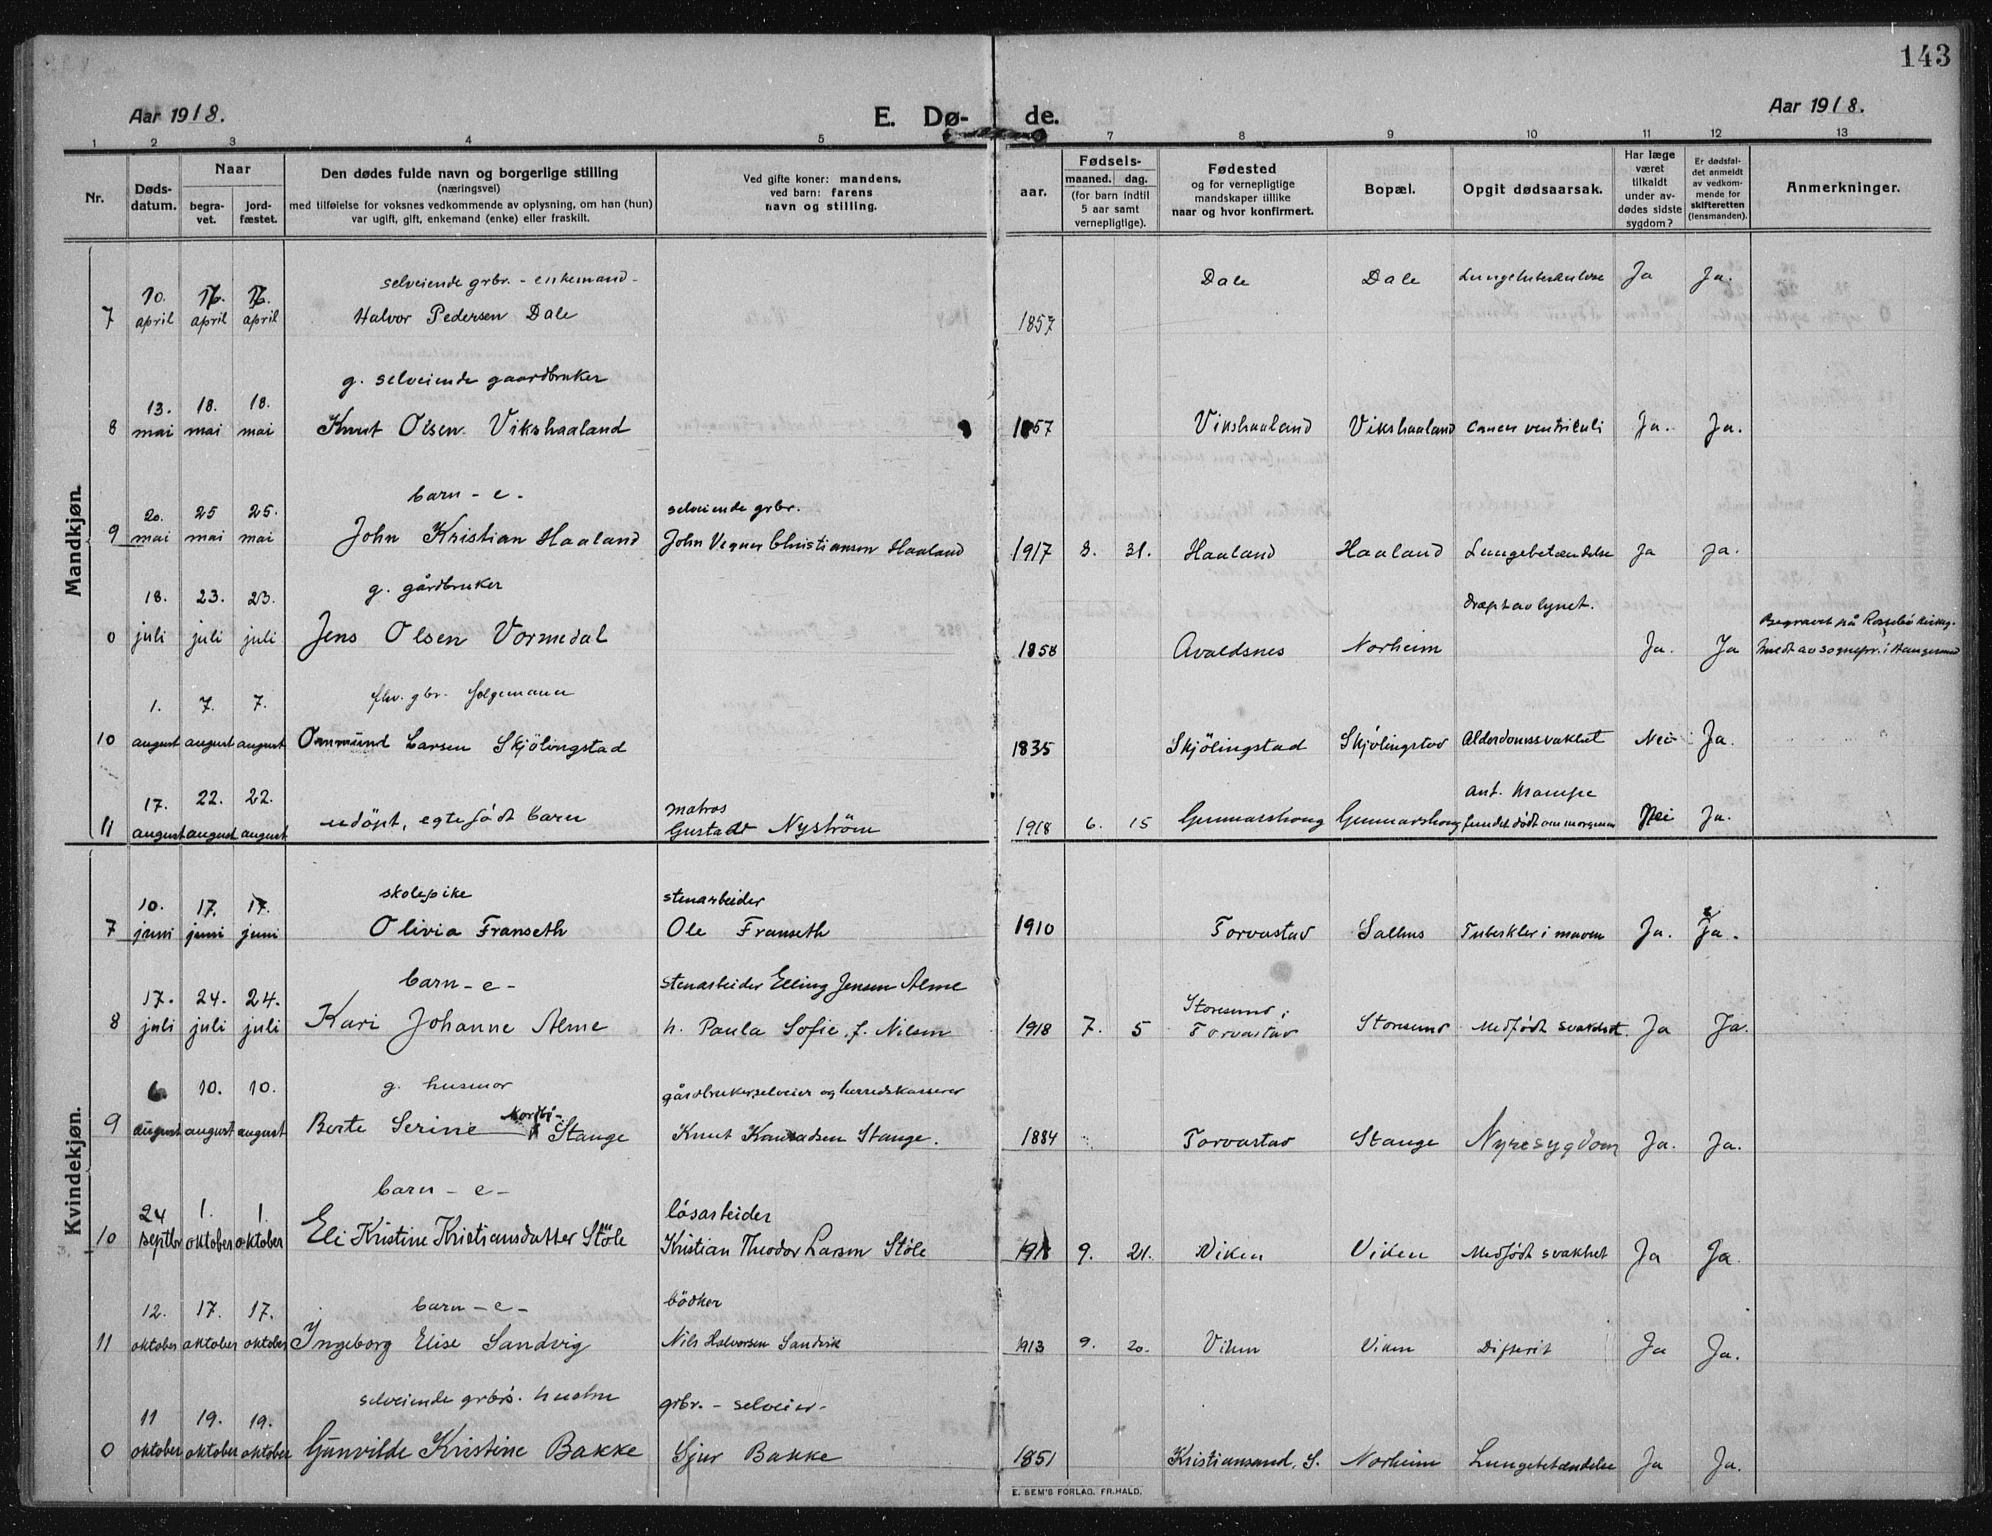 143
Aar 1918. E. Dø- de. Aar 1918.
1 2 3 4 5 7 8 9 10 11 12 13
Nr.
Døds-
datum.
Naar
begra-
vet.
jord-
fæstet.
Den dødes fulde navn og borgerlige stilling
(næringsvei)
med tilføielse for voksnes vedkommende av oplysning, om han (hun)
var ugift, gift, enkemand (enke) eller fraskilt.
Ved gifte koner: mandens,
ved barn: farens
navn og stilling.
aar.
Fødsels-
maaned. dag.
(for barn indtil
5 aar samt
vernepligtige).
Fødested
og for vernepligtige
mandskaper tillike
naar og hvor konfirmert.
Bopæl.
Opgit dødsaarsak.
Har læge
været
tilkaldt
under av-
dødes sidste
sygdom?
Er dødsfal-
det anmeldt
av vedkom-
mende for
skifteretten
(lensmanden).
Anmerkninger.
Mandkjøn.
10. 16. 16. selveiende grbr. - enkemand - Dale Dale Lungetuberkulose Ja Ja.
7 april april april Halvor Pedersen Dale 1857
g. selveiende gaardbruker
13. 18. 18.
8 mai mai mai Knut Olsen Vikshaaland 1857 Vikshaaland Vikshaaland Cancer ventriculi Ja. Ja.
barn - e -
20. 25 25. selveiende grbr.
9 mai mai mai John Kristian Haaland John Vegner Christiansen Haaland 1917 8. 31. Haaland Haaland Lungebetændelse Ja Ja.
g. gårdbruker
18. 23. 23. dræpt av lynet.
0 juli juli juli Jens Olsen Vormedal 1858 Avaldsnes Norheim Ja. Ja
Begravet på Rossebø kirkeg.
medt av sognepr. i Haugesund
fhv. gbr. Følgemann
1. 7. 7.
10 august august august Ommund Larsen Skjölingstad 1835 Skjölingstad Skjölingstad Alderdomssvakhet Nei Ja.
17. 22. 22. matros ant. krampe
11 august august august udöpt, egtefödt barn Gustav Nyström 1918 6. 15 Gunnarshaug Gunnarshaug fundet dödt om morgenen Nei Ja.
Kvindekjøn.
skolepike stenarbeider
10. 17. 17.
7 juni juni juni Olivia Franseth Ole Franseth 1910 Torvastad Salhus Tuberkler i maven Ja. Ja.
barn - e - stenarbeider Elling Jensen Alme
17. 24. 24. Storesund i
8 juli juli juli Kari Johanne Alme h. Paula Sofie f. Nilsen 1918 7. 5 Torvastad Storesund Medfödt svakhet. Ja Ja.
g. husmor gårdbruker, selveier og herredskasserer
6 10. 10.
9 august august august Berte Serine Stange Knut Konradsen Stange. 1884 Torvastad Stange Nyresygdom Ja. Ja.
barn - e -
24 1. 1. lösarbeider
10 septbr oktober oktober Eli Kristine Kristiansdatter Störe Kristian Theodor Larsen Störe 1918 9. 21. Viken Viken Medfödt svakhet Ja Ja.
barn - e - bödker
12. 17. 17.
11 oktober oktober oktober Ingeborg Elise Sandvig Nils Halvorsen Sandvik 1913 9. 20. Viken Viken Difterit Ja Ja.
selveiende grbr's. hustru grbr. - selveier -
11 19. 19.
0 oktober oktober oktober Gunvilde Kristine Bakke Sjur Bakke 1851 Kristiansand. S. Norheim Lungebetændelse Ja Ja.
E. SEM'S FORLAG. FR.HALD.